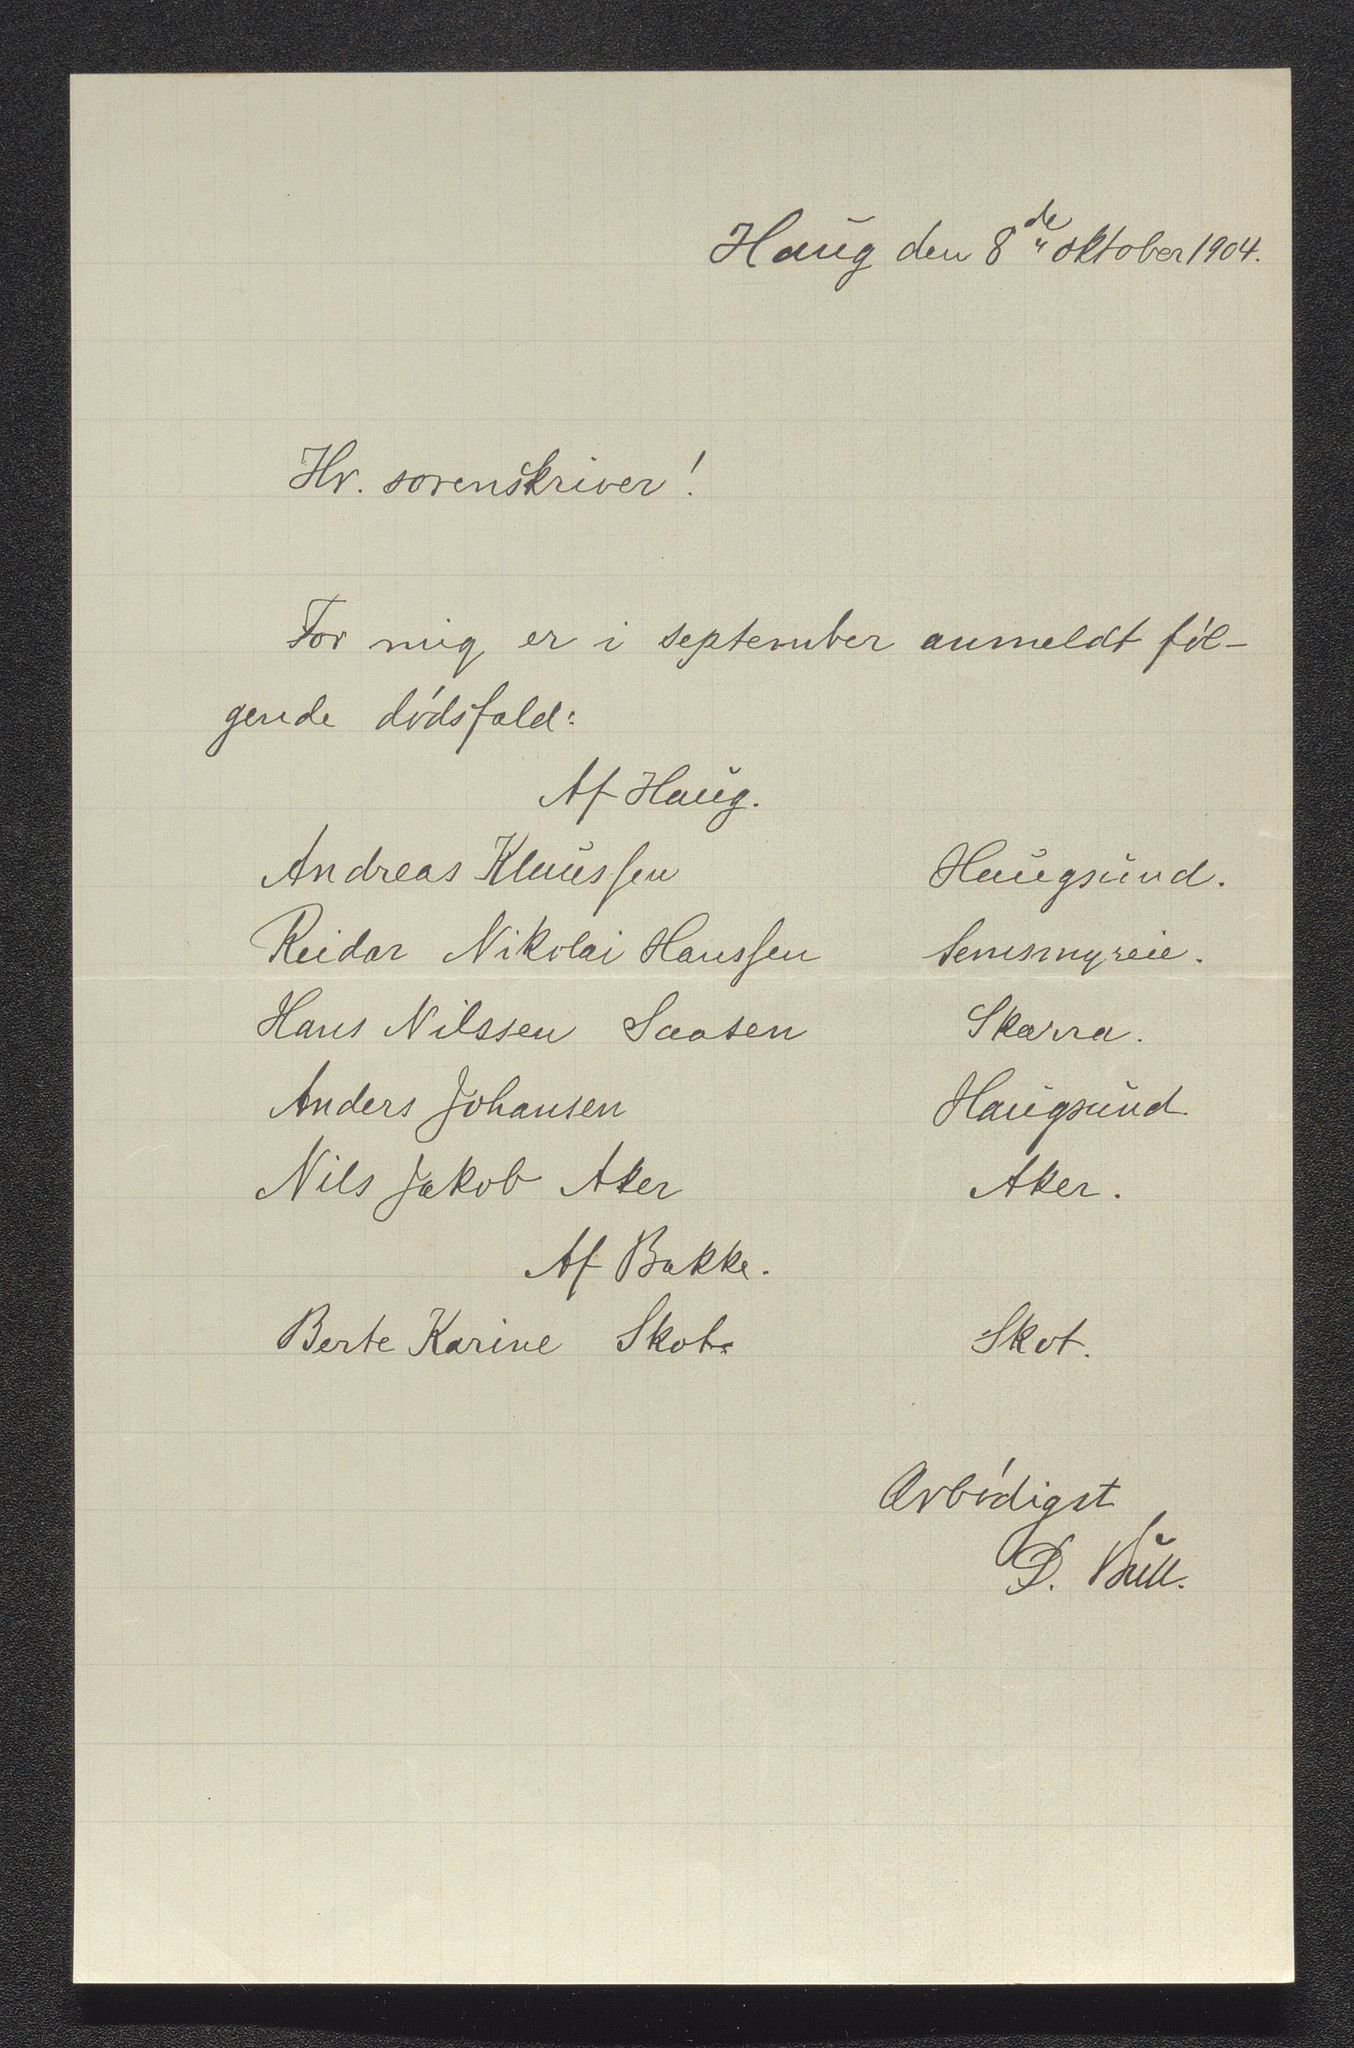 Haug den 8de oktober 1904.
Hr. sorenskriver!
For mig er i september anmeldt føl-
gende dødsfald:
Af Haug.
Andreas Klaussen Haugsund.
Reidar Nikolai Hanssen Semsmyreie.
Hans Nilssen Saasen Skarra.
Anders Johansen Haugsund
Nils Jakob Aker Aker.
Af Bakke.
Berte Karine Skot Skot.
Ærbødigst
D. Bull.